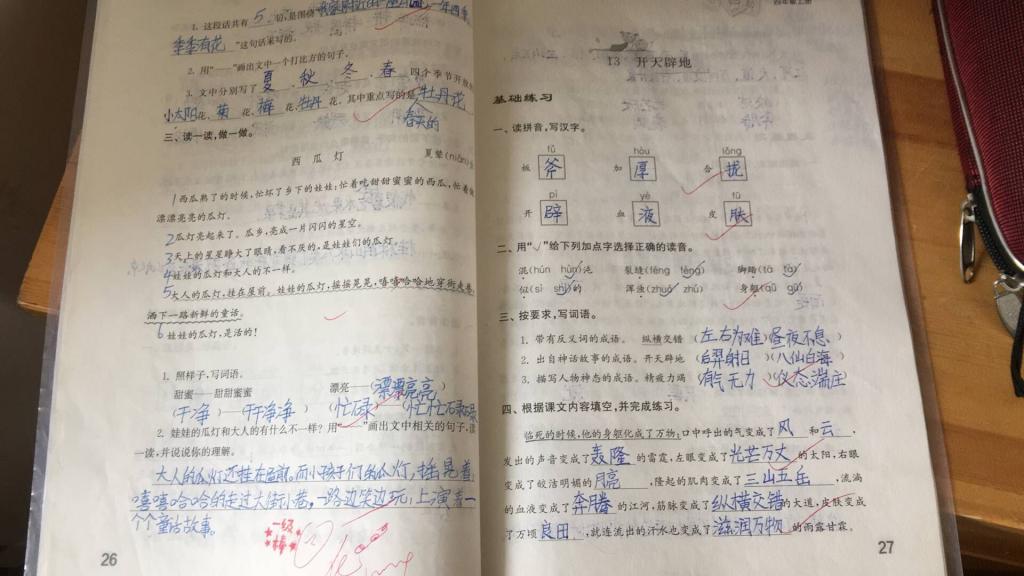 1. 这段话共有 5 句,是围绕“ 一年四季
季季有花 ”这句话来写的。
2. 用“——”画出文中一个打比方的句子。
3. 文中分别写了 夏 、秋 、冬 、春 四个季节开放的
小太阳花、菊 花、梅 花、牡丹 花,其中重点写的是 牡丹花
春天的
三、读一读,做一做。
西 瓜 灯
夏辇(niǎn)生
1西瓜熟了的时候,忙坏了乡下的娃娃;忙着吃甜甜蜜蜜的西瓜,忙着做
漂漂亮亮的瓜灯。
2瓜灯亮起来了。瓜乡,亮成一片闪闪的星空。
3天上的星星睁大了眼睛,看不厌的,是娃娃们的瓜灯。
4娃娃的瓜灯和大人的不一样。
5大人的瓜灯,挂在屋前。娃娃的瓜灯,摇摇晃晃,嘻嘻哈哈地穿街走巷,
洒下一路新鲜的童话。
6娃娃的瓜灯,是活的!
1. 照样子,写词语。
甜蜜——甜甜蜜蜜 漂亮——(漂漂亮亮)
(干净)——(干干净净) (忙碌)——(忙忙碌碌)
2. 娃娃的瓜灯和大人的有什么不一样?用“——”画出文中相关的句子,读
一读,并说说你的理解。
大人的瓜灯还挂在屋前。而小孩子们的瓜灯,摇晃着,
嘻嘻哈哈的走过大街小巷,一路边笑边玩,上演着一
个个童话故事。
一级棒
26
四年级上册
13 开天辟地
基础练习
一、读拼音,写汉字。
fǔ hòu lǒng
板 斧 加 厚 合 拢
pì yè fū
开 辟 血 液 皮 肤
二、用“√”给下列加点字选择正确的读音。
混(hún hùn)沌 裂缝(féng fèng) 脚踏(tā tà)
似(sì shì)的 浑浊(zhuó zhú) 身躯(qū gū)
三、按要求,写词语。
1. 带有反义词的成语。 纵横交错 (左右为难)(昼夜不息)
2. 出自神话故事的成语。开天辟地 (后羿射日)(八仙过海)
3. 描写人物神态的成语。精疲力竭 (有气无力)(仪态端庄)
四、根据课文内容填空,并完成练习。
临死的时候,他的身躯化成了万物:口中呼出的气变成了 风 和 云 ,
发出的声音变成了 轰隆 的雷霆,左眼变成了 光芒万丈 的太阳,右眼
变成了皎洁明媚的 月亮 ,隆起的肌肉变成了 三山五岳 ,流淌
的血液变成了 奔腾 的江河,筋脉变成了 纵横交错 的大道,皮肤变成
了万顷 良田 ,就连流出的汗水也变成了 滋润万物 的雨露甘霖。
27